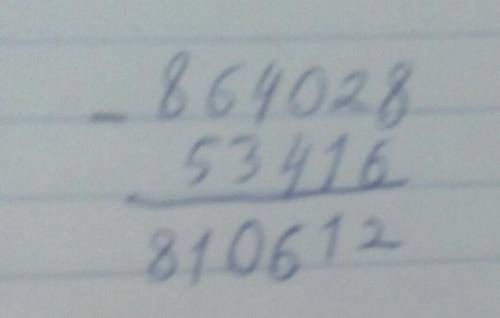 - 864028
53416
810612